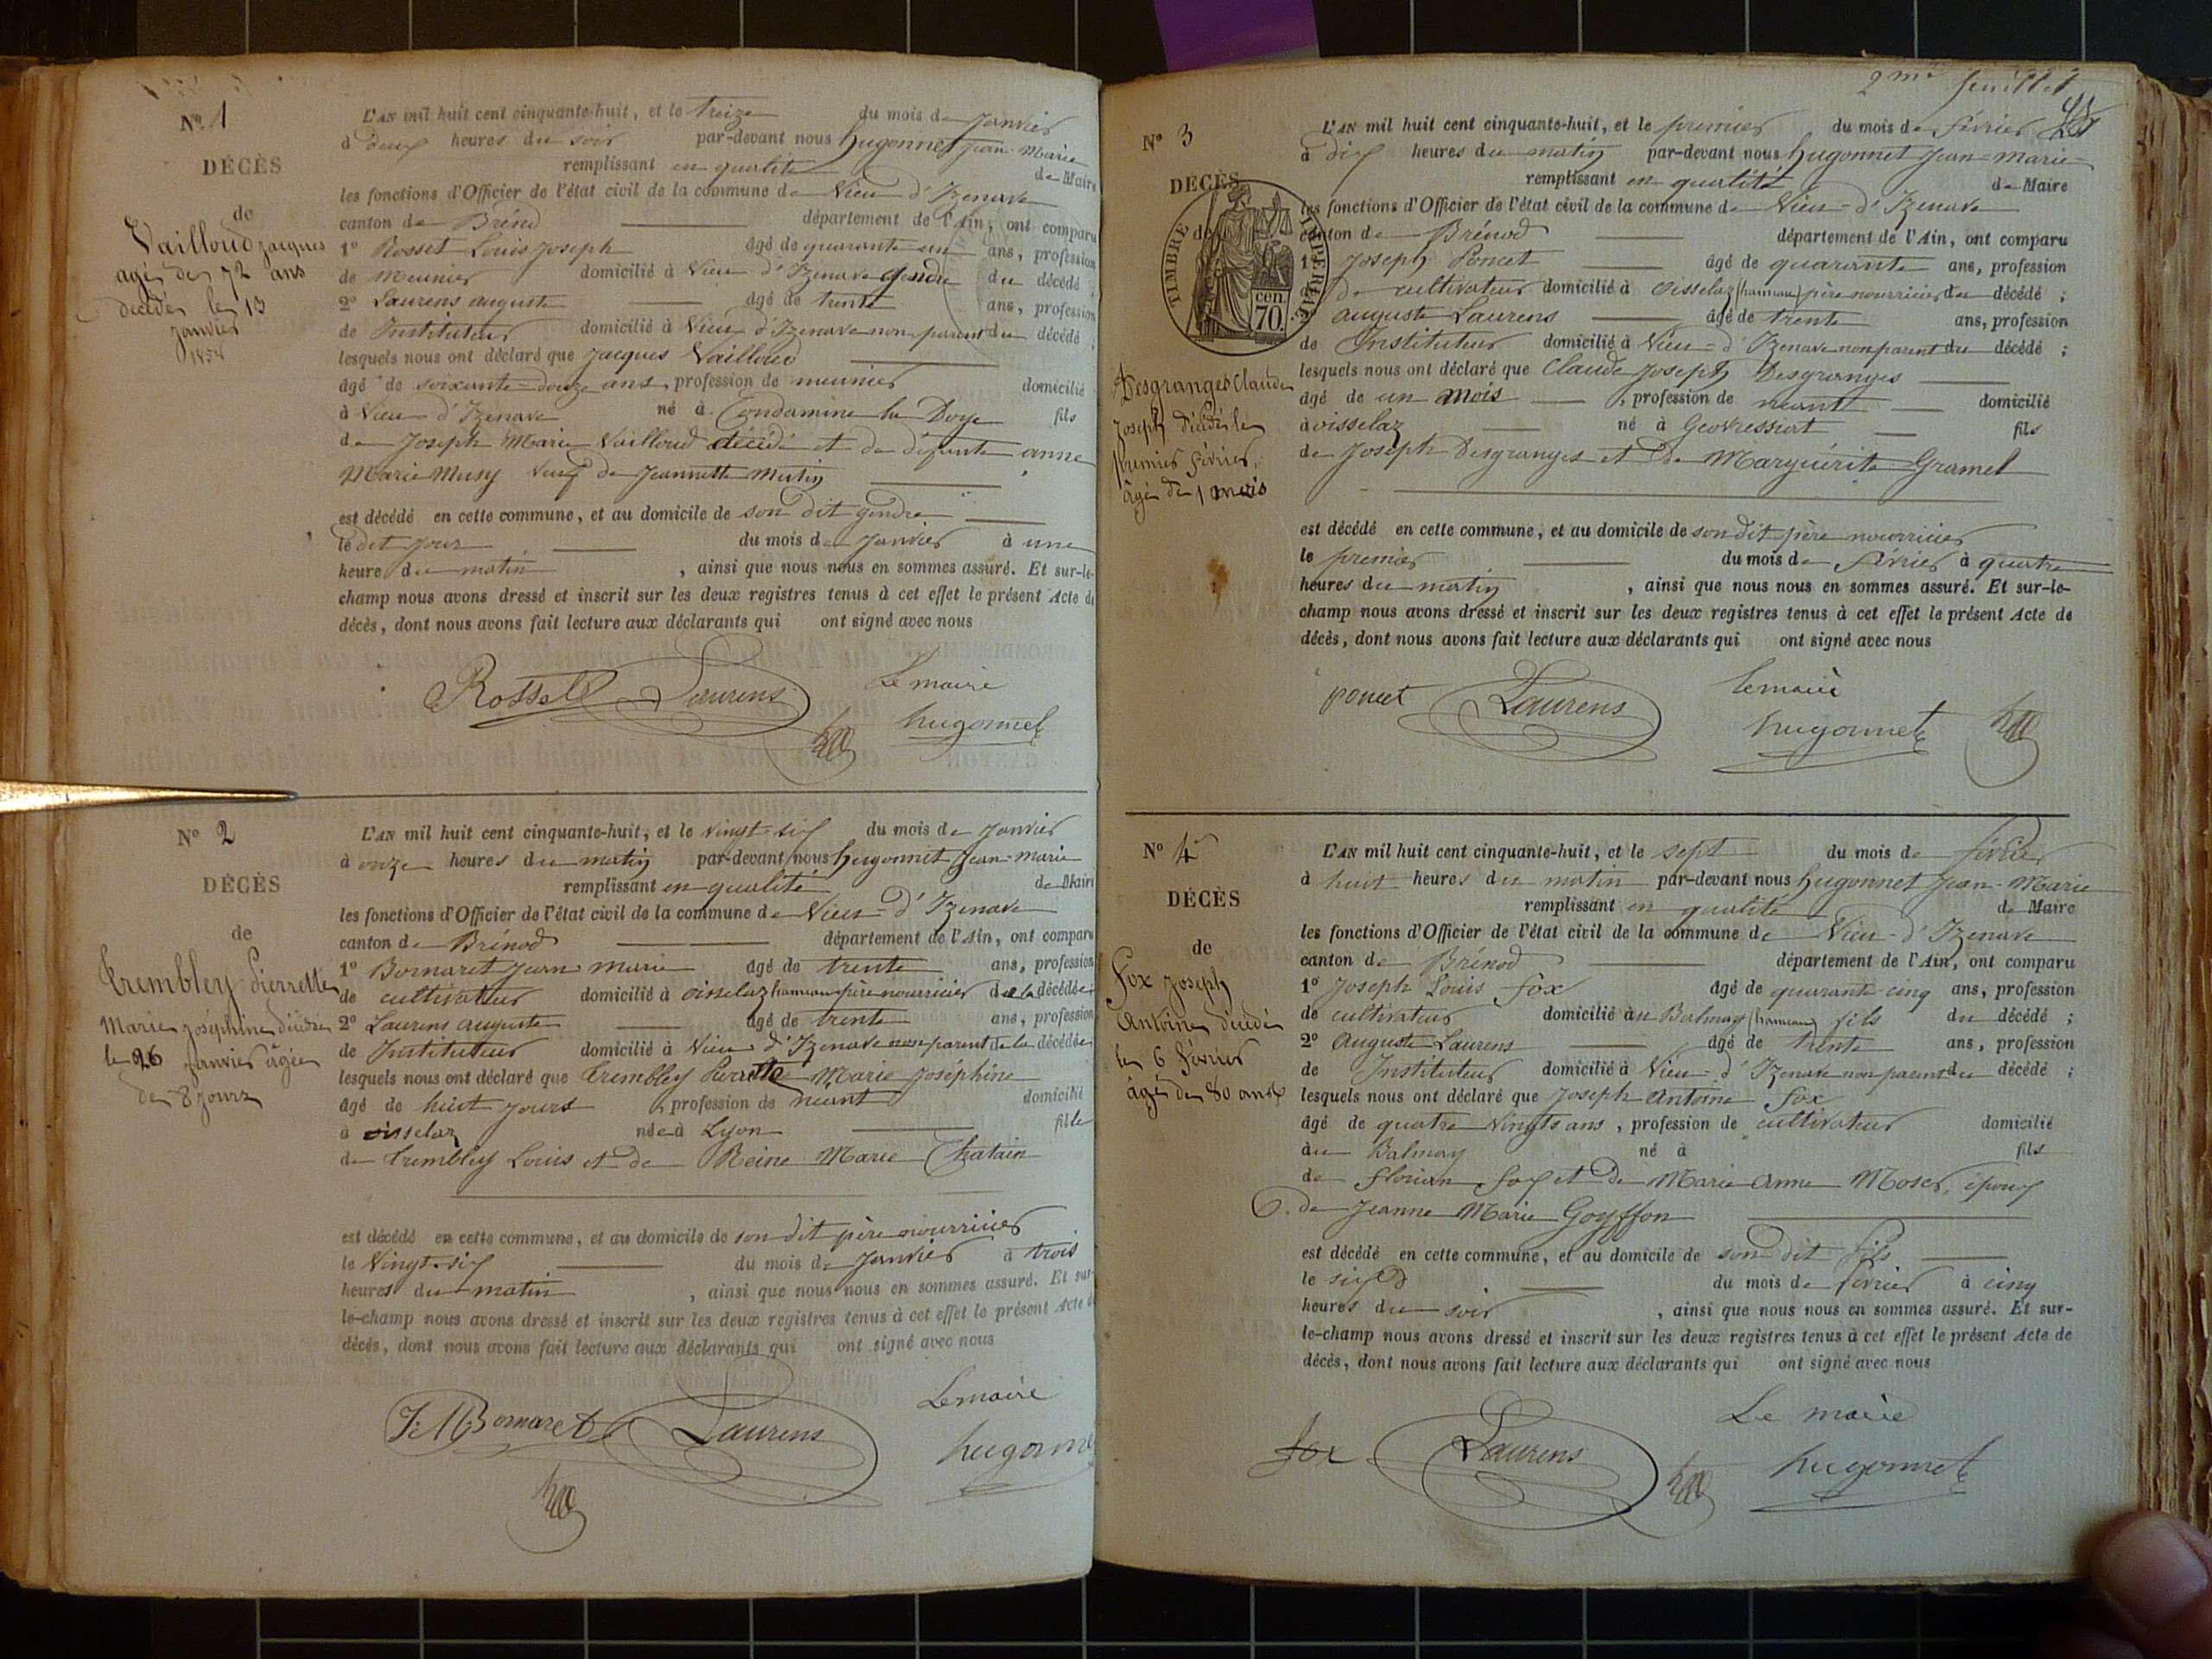 Nº 1
DÉCÈS
de
Vailloud Jacques
agé de 72 ans
décédé le 13
Janvier
1858
L'AN mil huit cent cinquante-huit, et le treize du mois de Janvier
à deux heures du soir par-devant nous hugonnet Jean-Marie
remplissant en qualité de Maire
les fonctions d'Officier de l'état civil de la commune de Vieu d'Izenave
canton de Brénod département de l'Ain, ont comparu
1º Rosset Louis Joseph âgé de quarante-un ans, profession
de Meunier domicilié à Vieu d'Izenave gendre du décédé ;
2º Laurens auguste âgé de trente ans, profession
de Instituteur domicilié à Vieu d'Izenave non parent du décédé ;
lesquels nous ont déclaré que Jacques Vailloud
âgé de soixante-douze ans, profession de meunier domicilié
à Vieu d'Izenave né à Condamine la Doye fils
de Joseph Marie Vailloud décédé et de défunte anne
Marie Musy Veuf de Jeannette Mutin
est décédé en cette commune, et au domicile de son dit gendre
le dit jour du mois de Janvier à une
heure du matin, ainsi que nous nous en sommes assuré. Et sur-le-
champ nous avons dressé et inscrit sur les deux registres tenus à cet effet le présent Acte de
décès, dont nous avons fait lecture aux déclarants qui ont signé avec nous
Rosset Laurens Le maire
hugonnet
Nº 2
DÉCÈS
de
Trembley Pierrette
Marie Joséphine décédée
le 26 Janvier âgée
de 8 jours
L'AN mil huit cent cinquante-huit, et le vingt-six du mois de Janvier
à onze heures du matin par-devant nous hugonnet Jean-Marie
remplissant en qualité de Maire
les fonctions d'Officier de l'état civil de la commune de Vieu-d'Izenave
canton de Brénod département de l'Ain, ont comparu
1º Bornaret Jean Marie âgé de trente ans, profession
de cultivateur domicilié à oisselaz hameau père nourricier de la décédée ;
2º Laurens auguste âgé de trente ans, profession
de Instituteur domicilié à Vieu d'Izenave non parent de la décédée
lesquels nous ont déclaré que Trembley Pierrette Marie Joséphine
âgé de huit jours, profession de néant domicilié
à oisselaz née à Lyon fille
de Trembley Louis et de Reine Marie Chatain
est décédé en cette commune, et au domicile de son dit père nourricier
le Vingt-six du mois de Janvier à trois
heures du matin, ainsi que nous nous en sommes assuré. Et sur-
le-champ nous avons dressé et inscrit sur les deux registres tenus à cet effet le présent Acte de
décès, dont nous avons fait lecture aux déclarants qui ont signé avec nous
J. M Bornaret Laurens Lemaire
hugonnet
2me feuillet
Nº 3
DÉCÈS
de
TIMBRE IMPÉRIAL
cen.
70.
Desgranges Claude
Joseph décédé le
premier février
âgé de 1 mois
L'AN mil huit cent cinquante-huit, et le premier du mois de février
à dix heures du matin par-devant nous hugonnet Jean-Marie
remplissant en qualité de Maire
les fonctions d'Officier de l'état civil de la commune de Vieu-d'Izenave
canton de Brénod département de l'Ain, ont comparu
1º Joseph Poncet âgé de quarante ans, profession
de cultivateur domicilié à oisselaz (hameau) père nourricier du décédé ;
2º auguste Laurens âgé de trente ans, profession
de Instituteur domicilié à Vieu-d'Izenave non parent du décédé ;
lesquels nous ont déclaré que Claude Joseph Desgranges
âgé de un mois, profession de néant domicilié
à oisselaz né à Geovressiat fils
de Joseph Desgranges et De Marguerite Gramel
est décédé en cette commune, et au domicile de son dit père nourricier
le premier du mois de février à quatre
heures du matin, ainsi que nous nous en sommes assuré. Et sur-le-
champ nous avons dressé et inscrit sur les deux registres tenus à cet effet le présent Acte de
décès, dont nous avons fait lecture aux déclarants qui ont signé avec nous
poncet Laurens lemaire
hugonnet
Nº 4
DÉCÈS
de
Fox Joseph
Antoine décédé
le 6 Février
âgé de 80 ans
L'AN mil huit cent cinquante-huit, et le sept du mois de février
à huit heures du matin par-devant nous hugonnet Jean-Marie
remplissant en qualité de Maire
les fonctions d'Officier de l'état civil de la commune de Vieu-d'Izenave
canton de Brénod département de l'Ain, ont comparu
1º Joseph Louis fox âgé de quarante-cinq ans, profession
de cultivateur domicilié au Balmay (hameau) fils du décédé ;
2º Auguste Laurens âgé de trente ans, profession
de Instituteur domicilié à Vieu-d'Izenave non parent du décédé ;
lesquels nous ont déclaré que Joseph Antoine fox
âgé de quatre Vingts ans, profession de cultivateur domicilié
au Balmay né à fils
de florian fox et De Marie Anne Moser, époux
de Jeanne Marie Goyffon
est décédé en cette commune, et au domicile de son dit fils
le six du mois de février à cinq
heures du soir, ainsi que nous nous en sommes assuré. Et sur-
le-champ nous avons dressé et inscrit sur les deux registres tenus à cet effet le présent Acte de
décès, dont nous avons fait lecture aux déclarants qui ont signé avec nous
fox Laurens Le maire
hugonnet